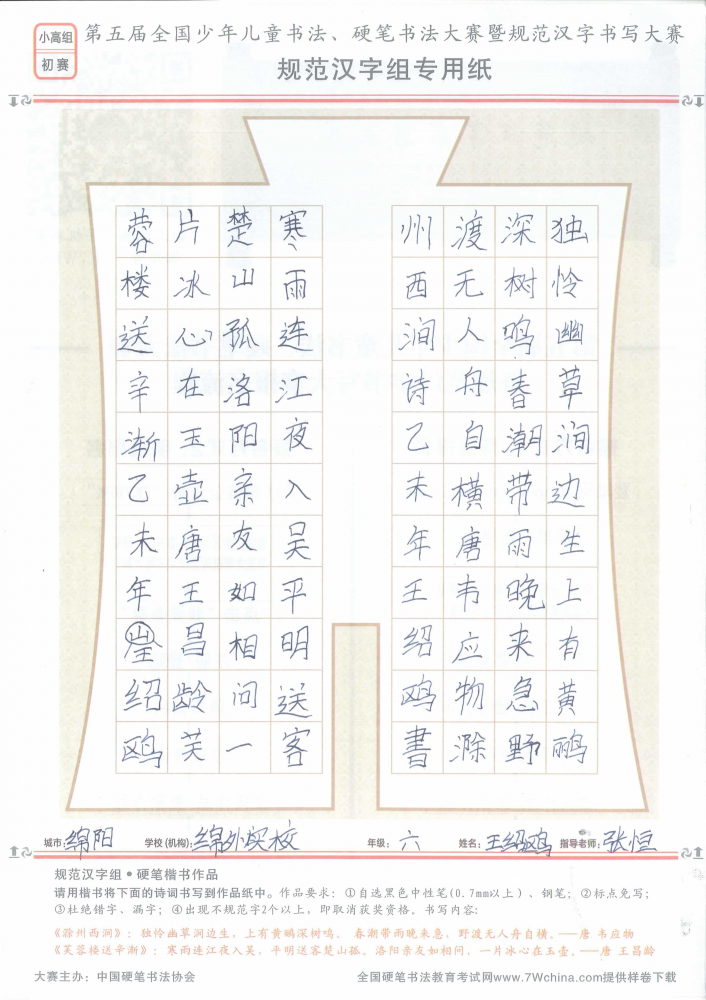 小高组
初赛
第五届全国少年儿童书法、硬笔书法大赛暨规范汉字书写大赛
规范汉字组专用纸
独怜幽草涧边生上有黄鹂
深树鸣春潮带雨晚来急野
渡无人舟自横唐韦应物滁
州西涧诗乙未年王绍鸥書
寒雨连江夜入吴平明送客
楚山孤洛阳亲友如相问一
片冰心在玉壶唐王昌龄芙
蓉楼送辛渐乙未年绍鸥
城市：绵阳 学校(机构)：绵外实校 年级：六 姓名：王绍鸥 指导老师：张恒
规范汉字组•硬笔楷书作品
请用楷书将下面的诗词书写到作品纸中。作品要求：①自选黑色中性笔(0.7mm以上)、钢笔；②标点免写；
③杜绝错字、漏字；④出现不规范字2个以上，即取消获奖资格。书写内容：
《滁州西涧》：独怜幽草涧边生，上有黄鹂深树鸣。 春潮带雨晚来急，野渡无人舟自横。——唐 韦应物
《芙蓉楼送辛渐》：寒雨连江夜入吴，平明送客楚山孤。洛阳亲友如相问，一片冰心在玉壶。——唐 王昌龄
大赛主办：中国硬笔书法协会 全国硬笔书法教育考试网www.7Wchina.com提供样卷下载